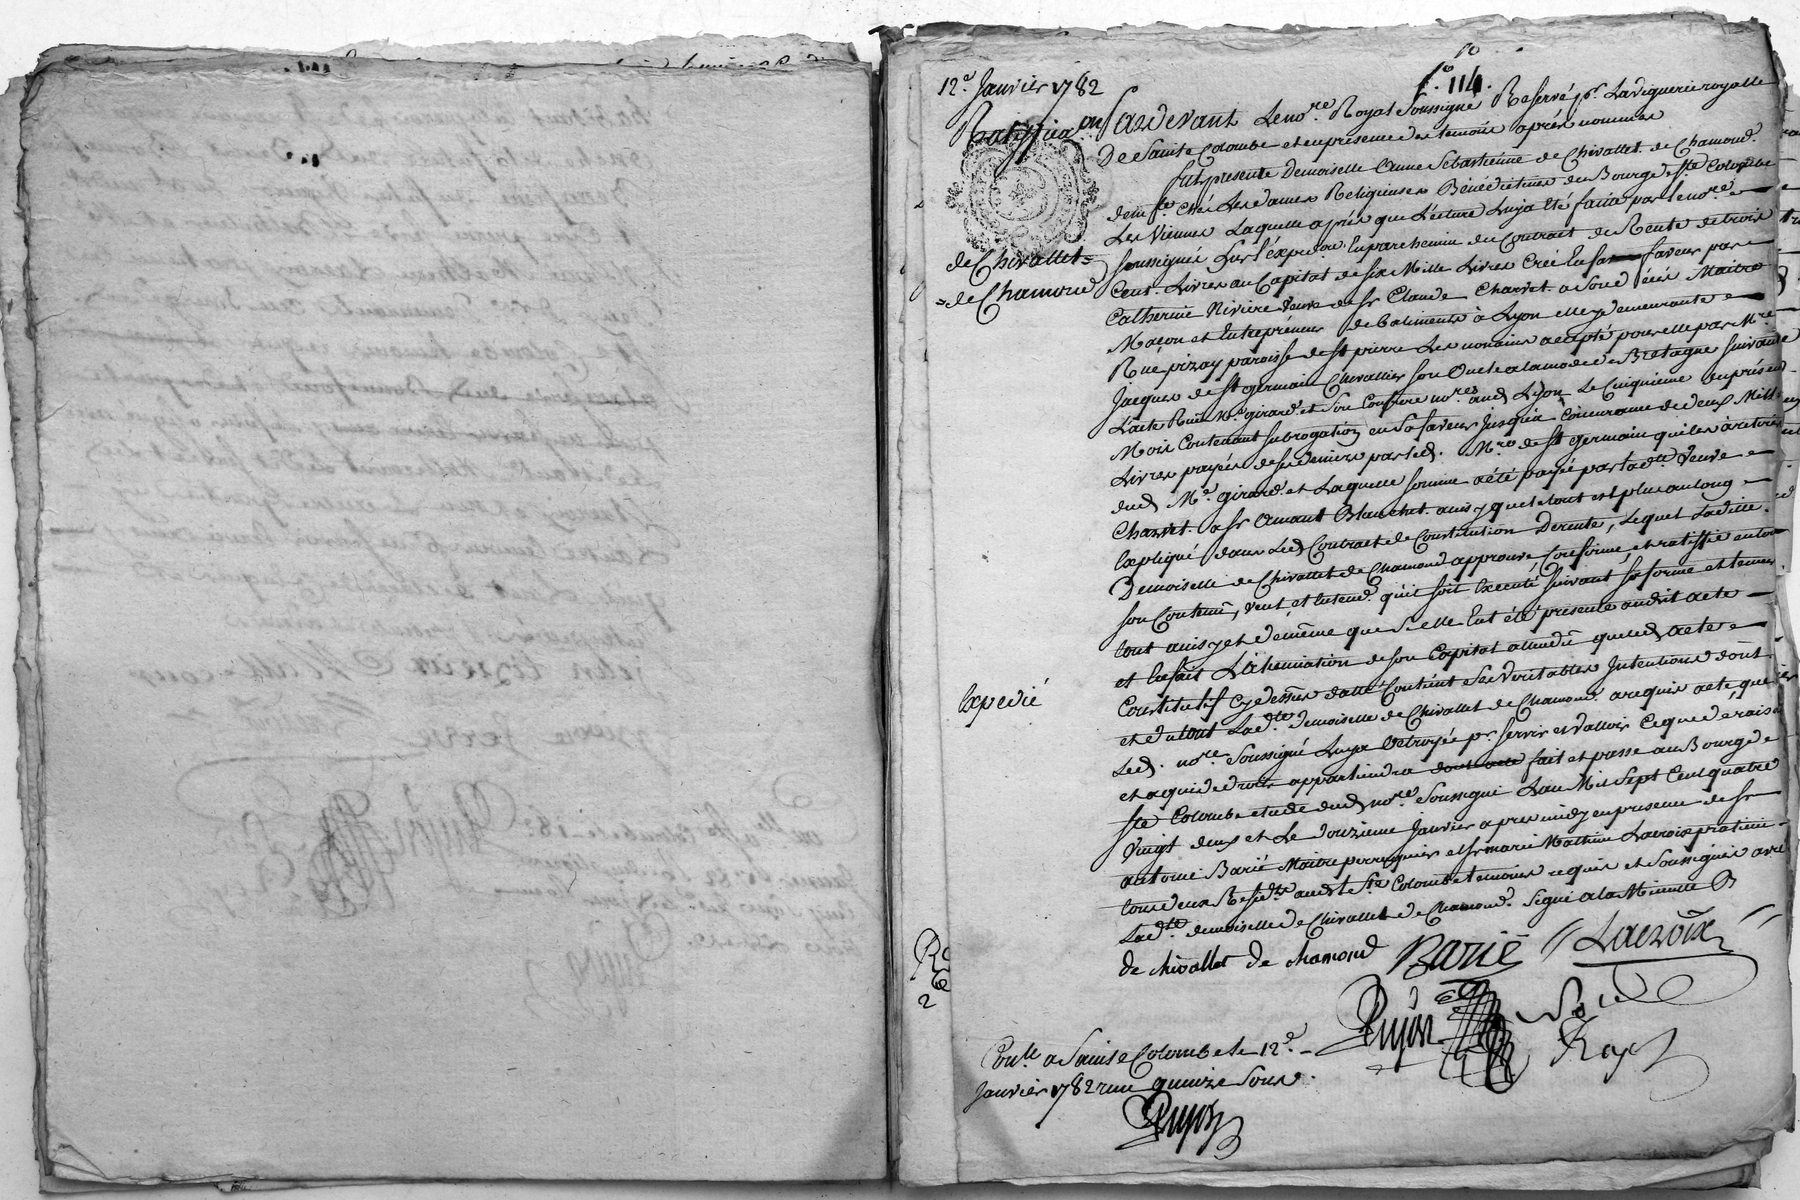 12e. Janvier 1782
fo. 114.
Ratiffica.on
de Chivallet=
=de Chamond
Expedié
Pardevant Le no.re Royal Soussigné Reservé pr. La viguerie royalle
De Sainte Colombe et en presence des temoins après nommés
fut presente Demoiselle Anne Sebastienne de Chivallet de Chamond.
dem.te chés Les dames Religieuses Bénédictines du Bourg de Ste. Colombe
Les Vienne Laquelle après que Lecture Luy a Eté faite par Le no.re
soussigné Sur L'expedon. En parchemin du Contrat de Rente de trois
Cent. Livres au Capital de six Mille Livres Créé En sa faveur par
Catherine Riviere veuve de sr. Claude Charvet a son décès Maitre
Maçon et Entrepreneur de Batiments à Lyon elle y demeurante
Rüe pizay paroisse de St pierre Les nonains accepté pour elle par Mre.
Jacques de St germain Chevallier son Oncle a la mode de Bretagne suivant
L'acte Recu Me. girard. et Son Confrere no.res aud. Lyon Le Cinquieme du présent
Mois Contenant subrogation en Sa faveur jusqu'a Concurance de deux Mille
Livres payés de ses deniers par led. Mre. de St germain qui les a retirés
dud. Me. girard. et Laquelle somme a été payée par lad.te Veuve
Charvet a sr Amant Blanchet ainsy que le tout est plus au long
Expliqué dans Led. Contrat de Constitution De rente, Lequel Laditte
Demoiselle de Chivallet de Chamond approuve, Confirme, et ratiffie en tout
son Contenu, veut, et Entend. qu'il soit Executé suivant sa forme et teneur
tout ainsy et de même que Si elle Eut été présente audit acte
et En fait L'alienation de son Capital attendu que led. acte
Constitutif Cy dessus datté Contient Ses Veritables Intentions dont
et du tout Lad.te demoiselle de Chivallet de Chamond. a requis acte, que
Led. no.re Soussigné Luy a Octroyée pr. servir et valloir Ce que de raison
et a qui de droit appartiendra dont acte fait et passé au Bourg de
Ste Colombe etude dud. no.re Soussigné L'an Mil Sept Cent quatre
Vingt deux et Le douzieme Janvier apres midy en presence de sr
antoine Barié Maitre perruquier et sr marie Mathieu Lacroix praticien
tous deux Residts. audit Ste Colombe temoins requis et Soussignés avec
Lad.te demoiselle de Chivallet de Chamond. Signé a la Minutte
de chivallet de chamond Barié Lacroix
Guyon
no.re
Roy.l
Con.lle a Sainte Colombe le 12e.
Janvier 1782 reçu quinze Sous.
Guyon